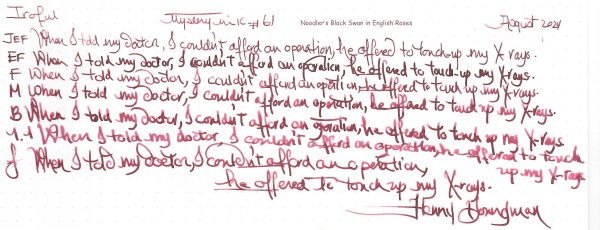 Iroful Mystery ink # 61 Noodler's Black Swan in English Roses August 2024
JEF When I told my doctor, I couldn't afford an operation, he offered to touch-up my X-rays.
EF When I told my doctor, I couldn't afford an operation, he offered to touch-up my X-rays.
F When I told my doctor, I couldn't afford an operation, he offered to touch up my X-rays.
M When I told my doctor, I couldn't afford an operation, he offered to touch up my X-rays.
B When I told my doctor, I couldn't afford an operation, he offered to touch up my X-rays.
1.1 When I told my doctor I couldn't afford an operation, he offered to touch
up my X-rays
J When I told my doctor, I couldn't afford an operation,
he offered to touch up my X-rays.
Henny Youngman